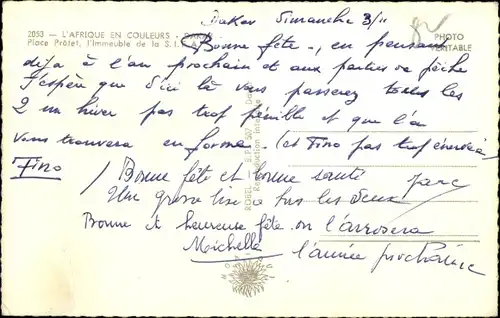 Dakar Dimanche 3/11
2053 — L'AFRIQUE EN COULEURS - DAKAR
Place Protet, l'Immeuble de la S.I.
PHOTO
VÉRITABLE
Bonne fête, en pensant
déjà à l'an prochain et aux parties de pêche
J'espère que d'ici là vous passerez tous les
2 un hiver pas trop pénible et que l'on
vous trouvera en forme. (et Fino pas trop énervée)
Fino / Bonne fête et bonne santé
Une grosse bise à tous les deux Marc
Bonne et heureuse fête on l'arrosera
Michelle l'année prochaine